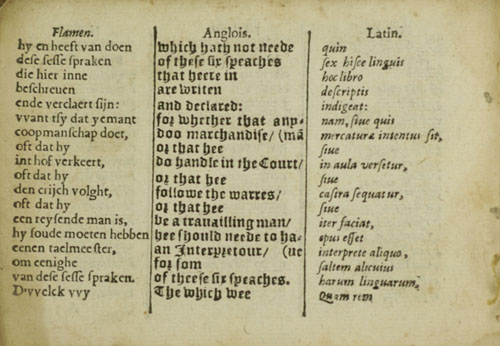 Flamen.
hy en heeft van doen
deſe ſeſſe ſpraken
die hier inne
beſchreuen
ende verclaert ſijn:
vvant tſy dat yemant
coopmanſchap doet,
oft dat hy
int hof verkeert,
oft dat hy
den crijch volght,
oft dat hy
een reyſende man is,
hy ſoude moeten hebben
eenen taelmeeſter,
om eenighe
van deſe ſeſſe ſpraken.
D'vvelck vvy
Anglois.
which hath not neede
of theſe ſix ſpeaches
that heere in
are writen
and declared:
for whether that any-
doo marchandiſe/ (mā
or that hee
do handle in the Court/
or that hee
followe the warres/
or that hee
be a travailling man/
hee ſhould neede to ha-
an Interpretour/ (ue
for ſom
of theeſe ſix ſpeaches.
The which wee
Latin.
quin
ſex hiſce linguis
hoc libro
deſcriptis
indigeat:
nam, ſiue quis
mercaturæ intentus ſit,
ſiue
in aula verſetur,
ſiue
caſtra ſequatur,
ſiue
iter faciat,
opus eſſet
interprete aliquo,
ſaltem alicuius
harum linguarum.
Quam rem